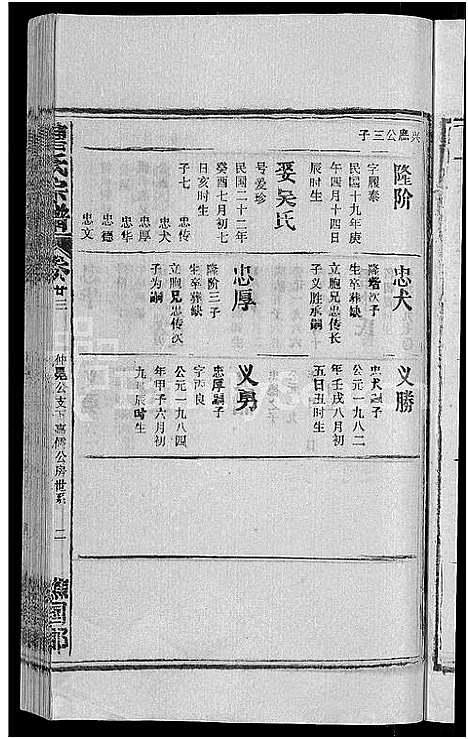 兴廷公三子
隆阶
字履泰
民国十九年庚
午四月十四日
辰时生
娶吴氏
号爱珍
民国二十二年
癸酉七月初七
日亥时生
子七
忠传
忠犬
忠厚
忠华
忠德
忠文
忠犬
隆阶次子
生卒葬缺
立胞兄忠传长
子义胜承嗣
忠厚
隆阶三子
生卒葬缺
立胞兄忠传次
子为嗣
义勝
忠犬嗣子
公元一九八二
年壬戌八月初
五日丑时生
义勇
忠厚嗣子
公元一九八四
年甲子六月初
九日辰时生
氏宗譜
卷
廿三
仲晃公支下嘉儒公房世系
二
国郡